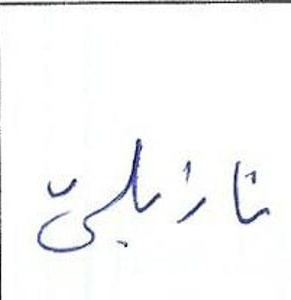 نازبليّ